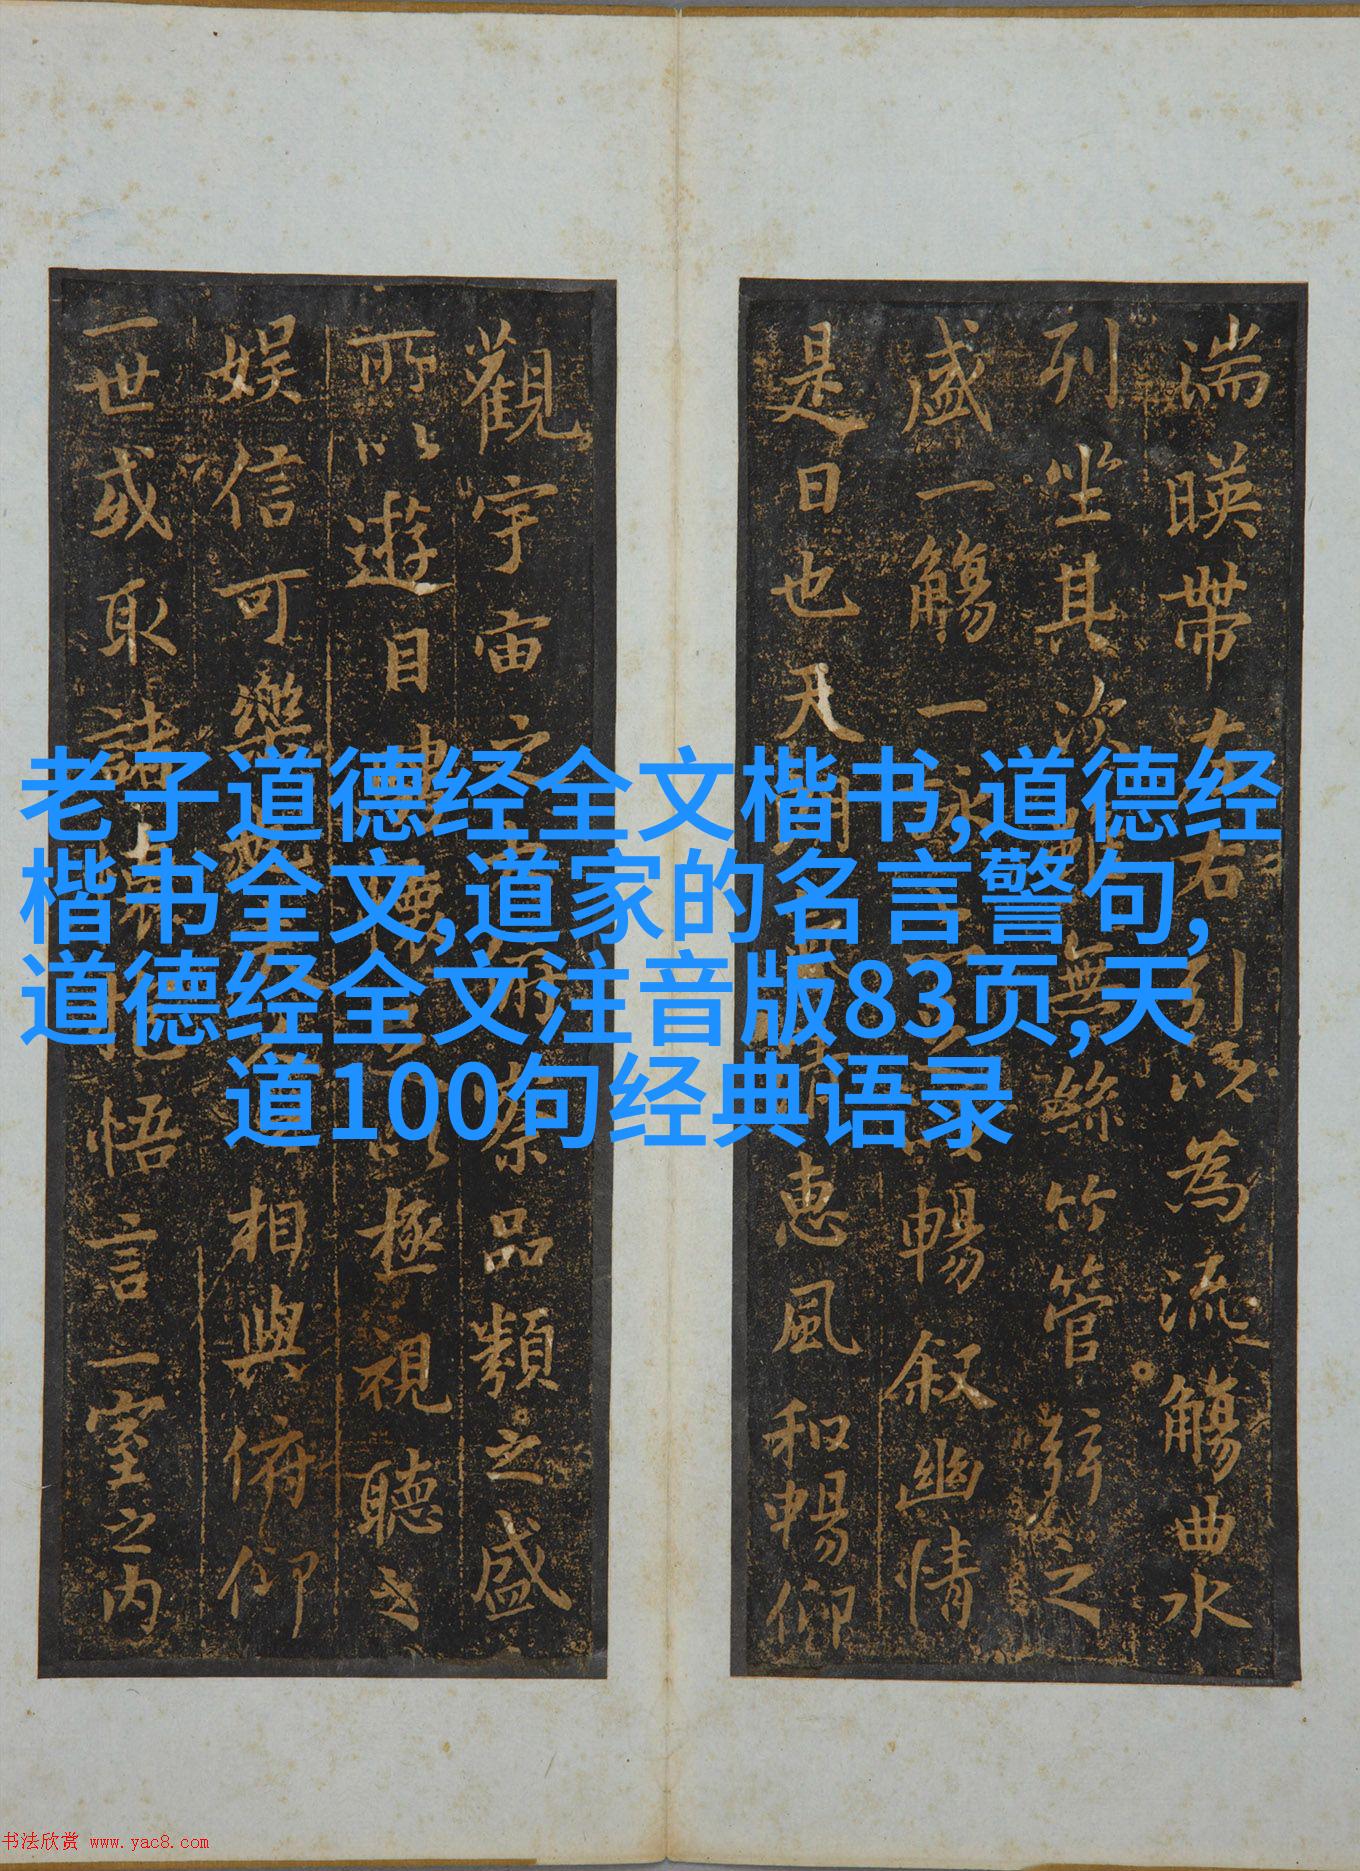 湍暎帶左右引以為流觴曲水
列坐其次雖無絲竹管弦之
盛一觴一詠亦足以暢叙幽情
是日也天朗氣清惠風和暢仰
觀宇宙之大俯察品類之盛
所以遊目騁懷足以極視聽之
娱信可樂也夫人之相與俯仰
一世或取諸懷抱悟言一室之内
老子道德经全文楷书,道德经
楷书全文,道家的名言警句,
道德经全文注音版83页,天
道100句经典语录
书法欣赏 www.yac8.com